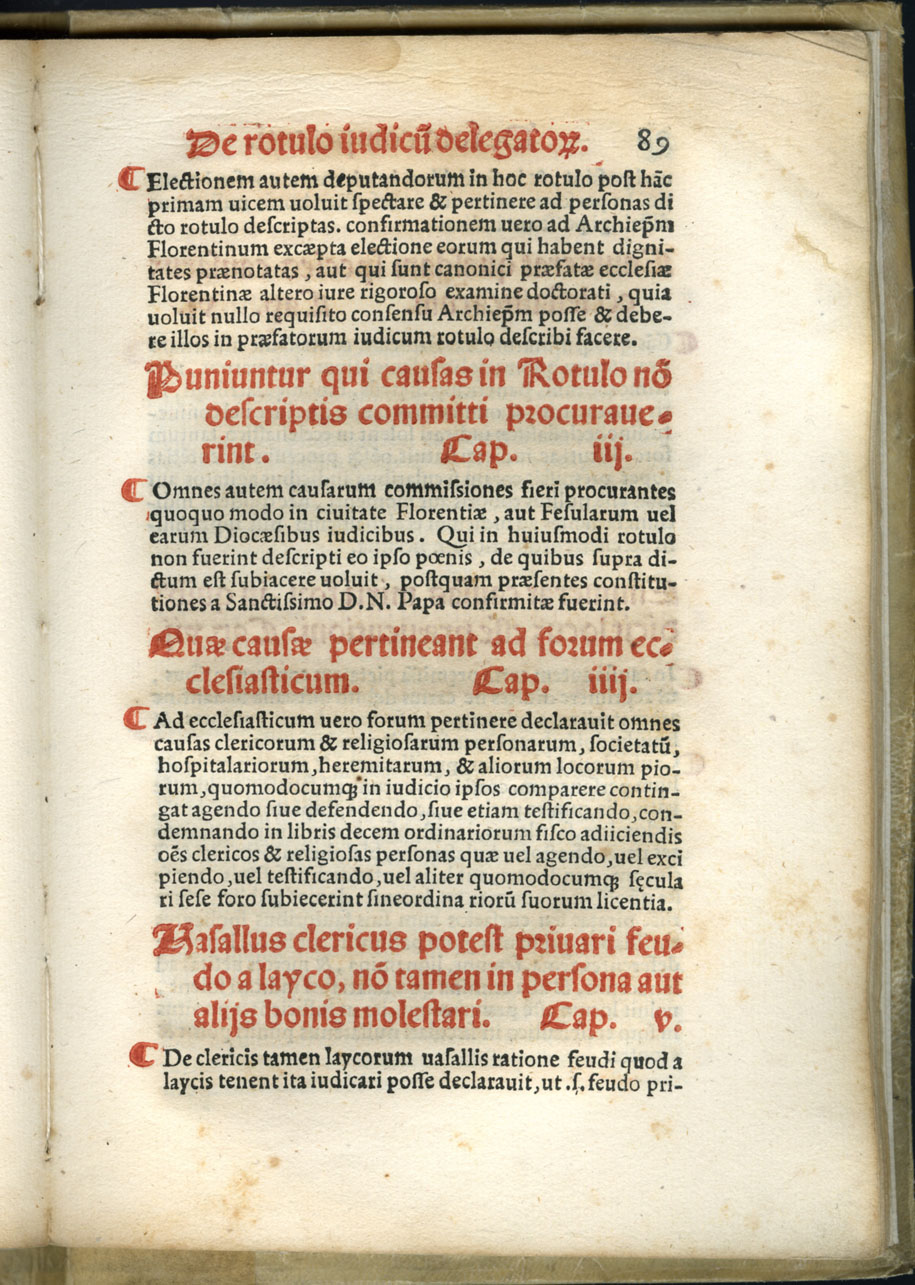 De rotulo iudicū delegatoꝝ. 89
¶ Electionem autem deputandorum in hoc rotulo post hāc
primam uicem uoluit spectare & pertinere ad personas di
cto rotulo descriptas. confirmationem uero ad Archiep̄m
Florentinum excæpta electione eorum qui habent digni-
tates prænotatas, aut qui sunt canonici præfatæ ecclesiæ
Florentinæ altero iure rigoroso examine doctorati, quia
uoluit nullo requisito consensu Archiep̄m posse & debe-
re illos in præfatorum iudicum rotulo describi facere.
Puniuntur qui causas in Rotulo nō
descriptis committi procuraue-
rint. Cap. iij.
¶ Omnes autem causarum commissiones fieri procurantes
quoquo modo in ciuitate Florentiæ, aut Fesularum uel
earum Diocæsibus iudicibus. Qui in huiusmodi rotulo
non fuerint descripti eo ipso pœnis, de quibus supra di-
ctum est subiacere uoluit, postquam præsentes constitu-
tiones a Sanctissimo D.N. Papa confirmitæ fuerint.
Quæ causæ pertineant ad forum ec-
clesiasticum. Cap. iiij.
¶ Ad ecclesiasticum uero forum pertinere declarauit omnes
causas clericorum & religiosarum personarum, societatū,
hospitalariorum, heremitarum, & aliorum locorum pio-
rum, quomodocumq; in iudicio ipsos comparere contin-
gat agendo siue defendendo, siue etiam testificando, con-
demnando in libris decem ordinariorum fisco adiiciendis
oēs clericos & religiosas personas quæ uel agendo, uel exci
piendo, uel testificando, uel aliter quomodocumq; sęcula
ri sese foro subiecerint sineordina riorū suorum licentia.
Vasallus clericus potest priuari feu-
do a layco, nō tamen in persona aut
alijs bonis molestari. Cap. v.
¶ De clericis tamen laycorum uasallis ratione feudi quod a
laycis tenent ita iudicari posse declarauit, ut .s. feudo pri-